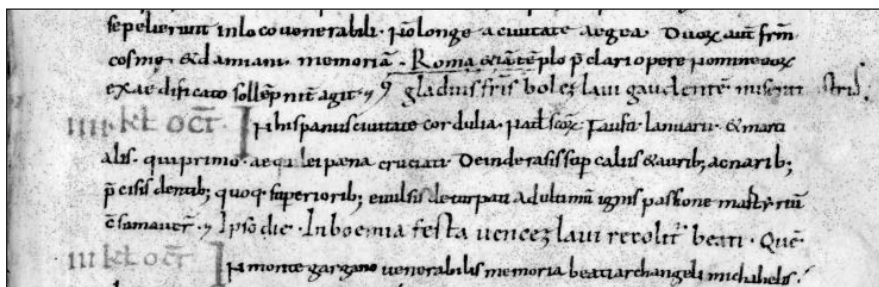 sepelierunt in loco venerabili · Non longe a civitate aegea Duoꝝ aut̄ fr̄m
cosme & damiani memoriā · Roma etiā tēplo p̄clari opere nomine eoꝝ
exaedificato sollēpnit̄ agit̄ ·,, gladius fr̄is bolezlaui gaudentē miserat astris.
IIII kł oct̄ In hispanis civitate cordubia · Nat̄ scōꝝ Fausti Ianuarii · & marti
alis · qui primo · aequulei paena cruciati · Deinde rasis supcaliis & aurib; ac narib;
p̄cisis dentib; quoq· superiorib; evulsis deturpati ad ultimū ignis passione martyriū
c̄sūmaver̄ ·,, Ipso die · In boemia festa uencezlaui recolit̄ beati · Quē
III kł oct̄ In monte gargano venerabilis memoria beati archangeli michahelis ·